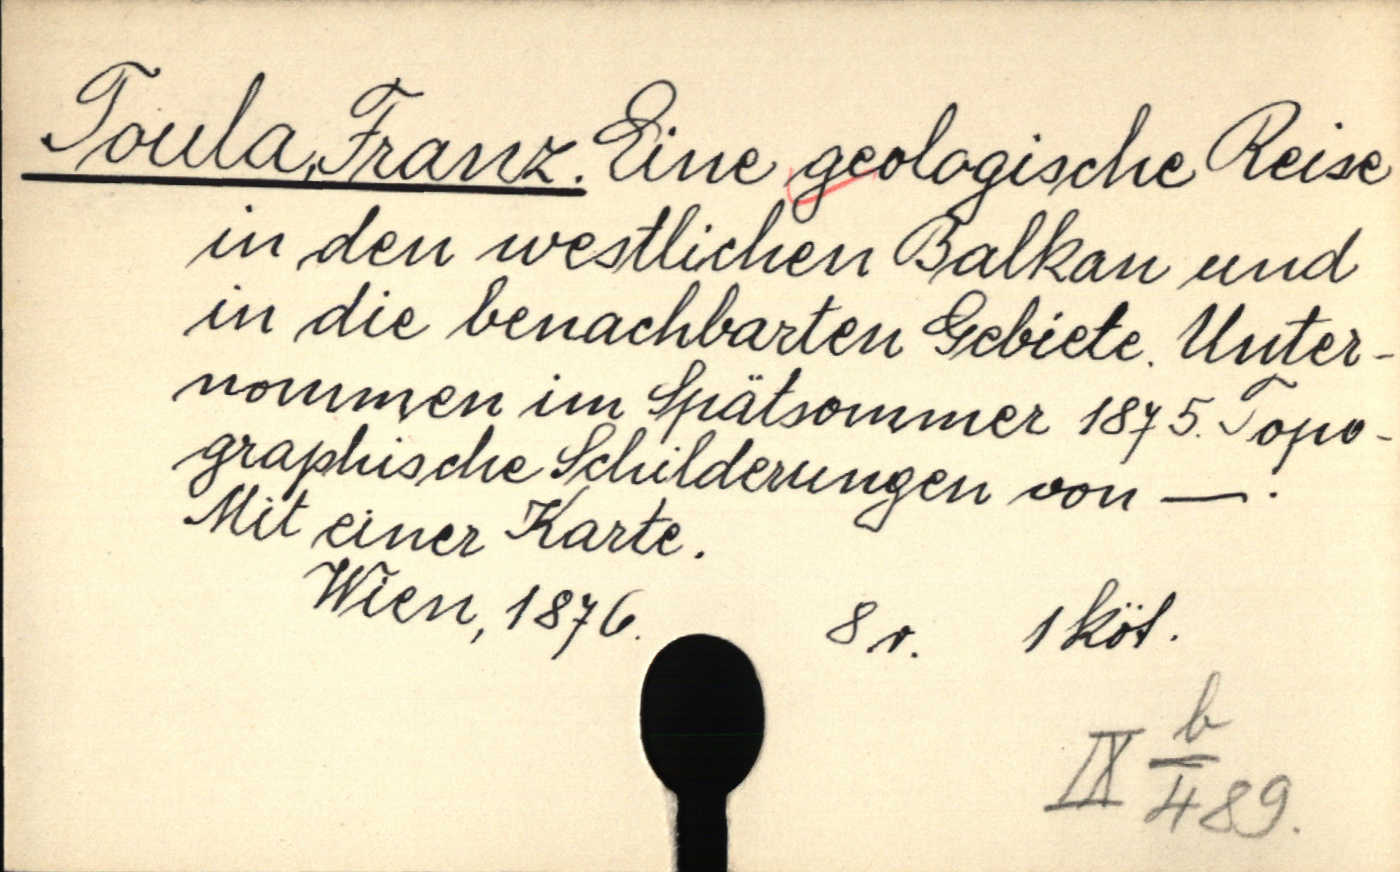 Toula, Franz. Eine geologische Reise
in den westlichen Balkan und
in die benachbarten Gebiete. Unter-
nommen im Spätsommer 1875. Topo-
graphische Schilderungen von —.
Mit einer Karte.
Wien, 1876. 8r. 1 köt.
IX b/489.